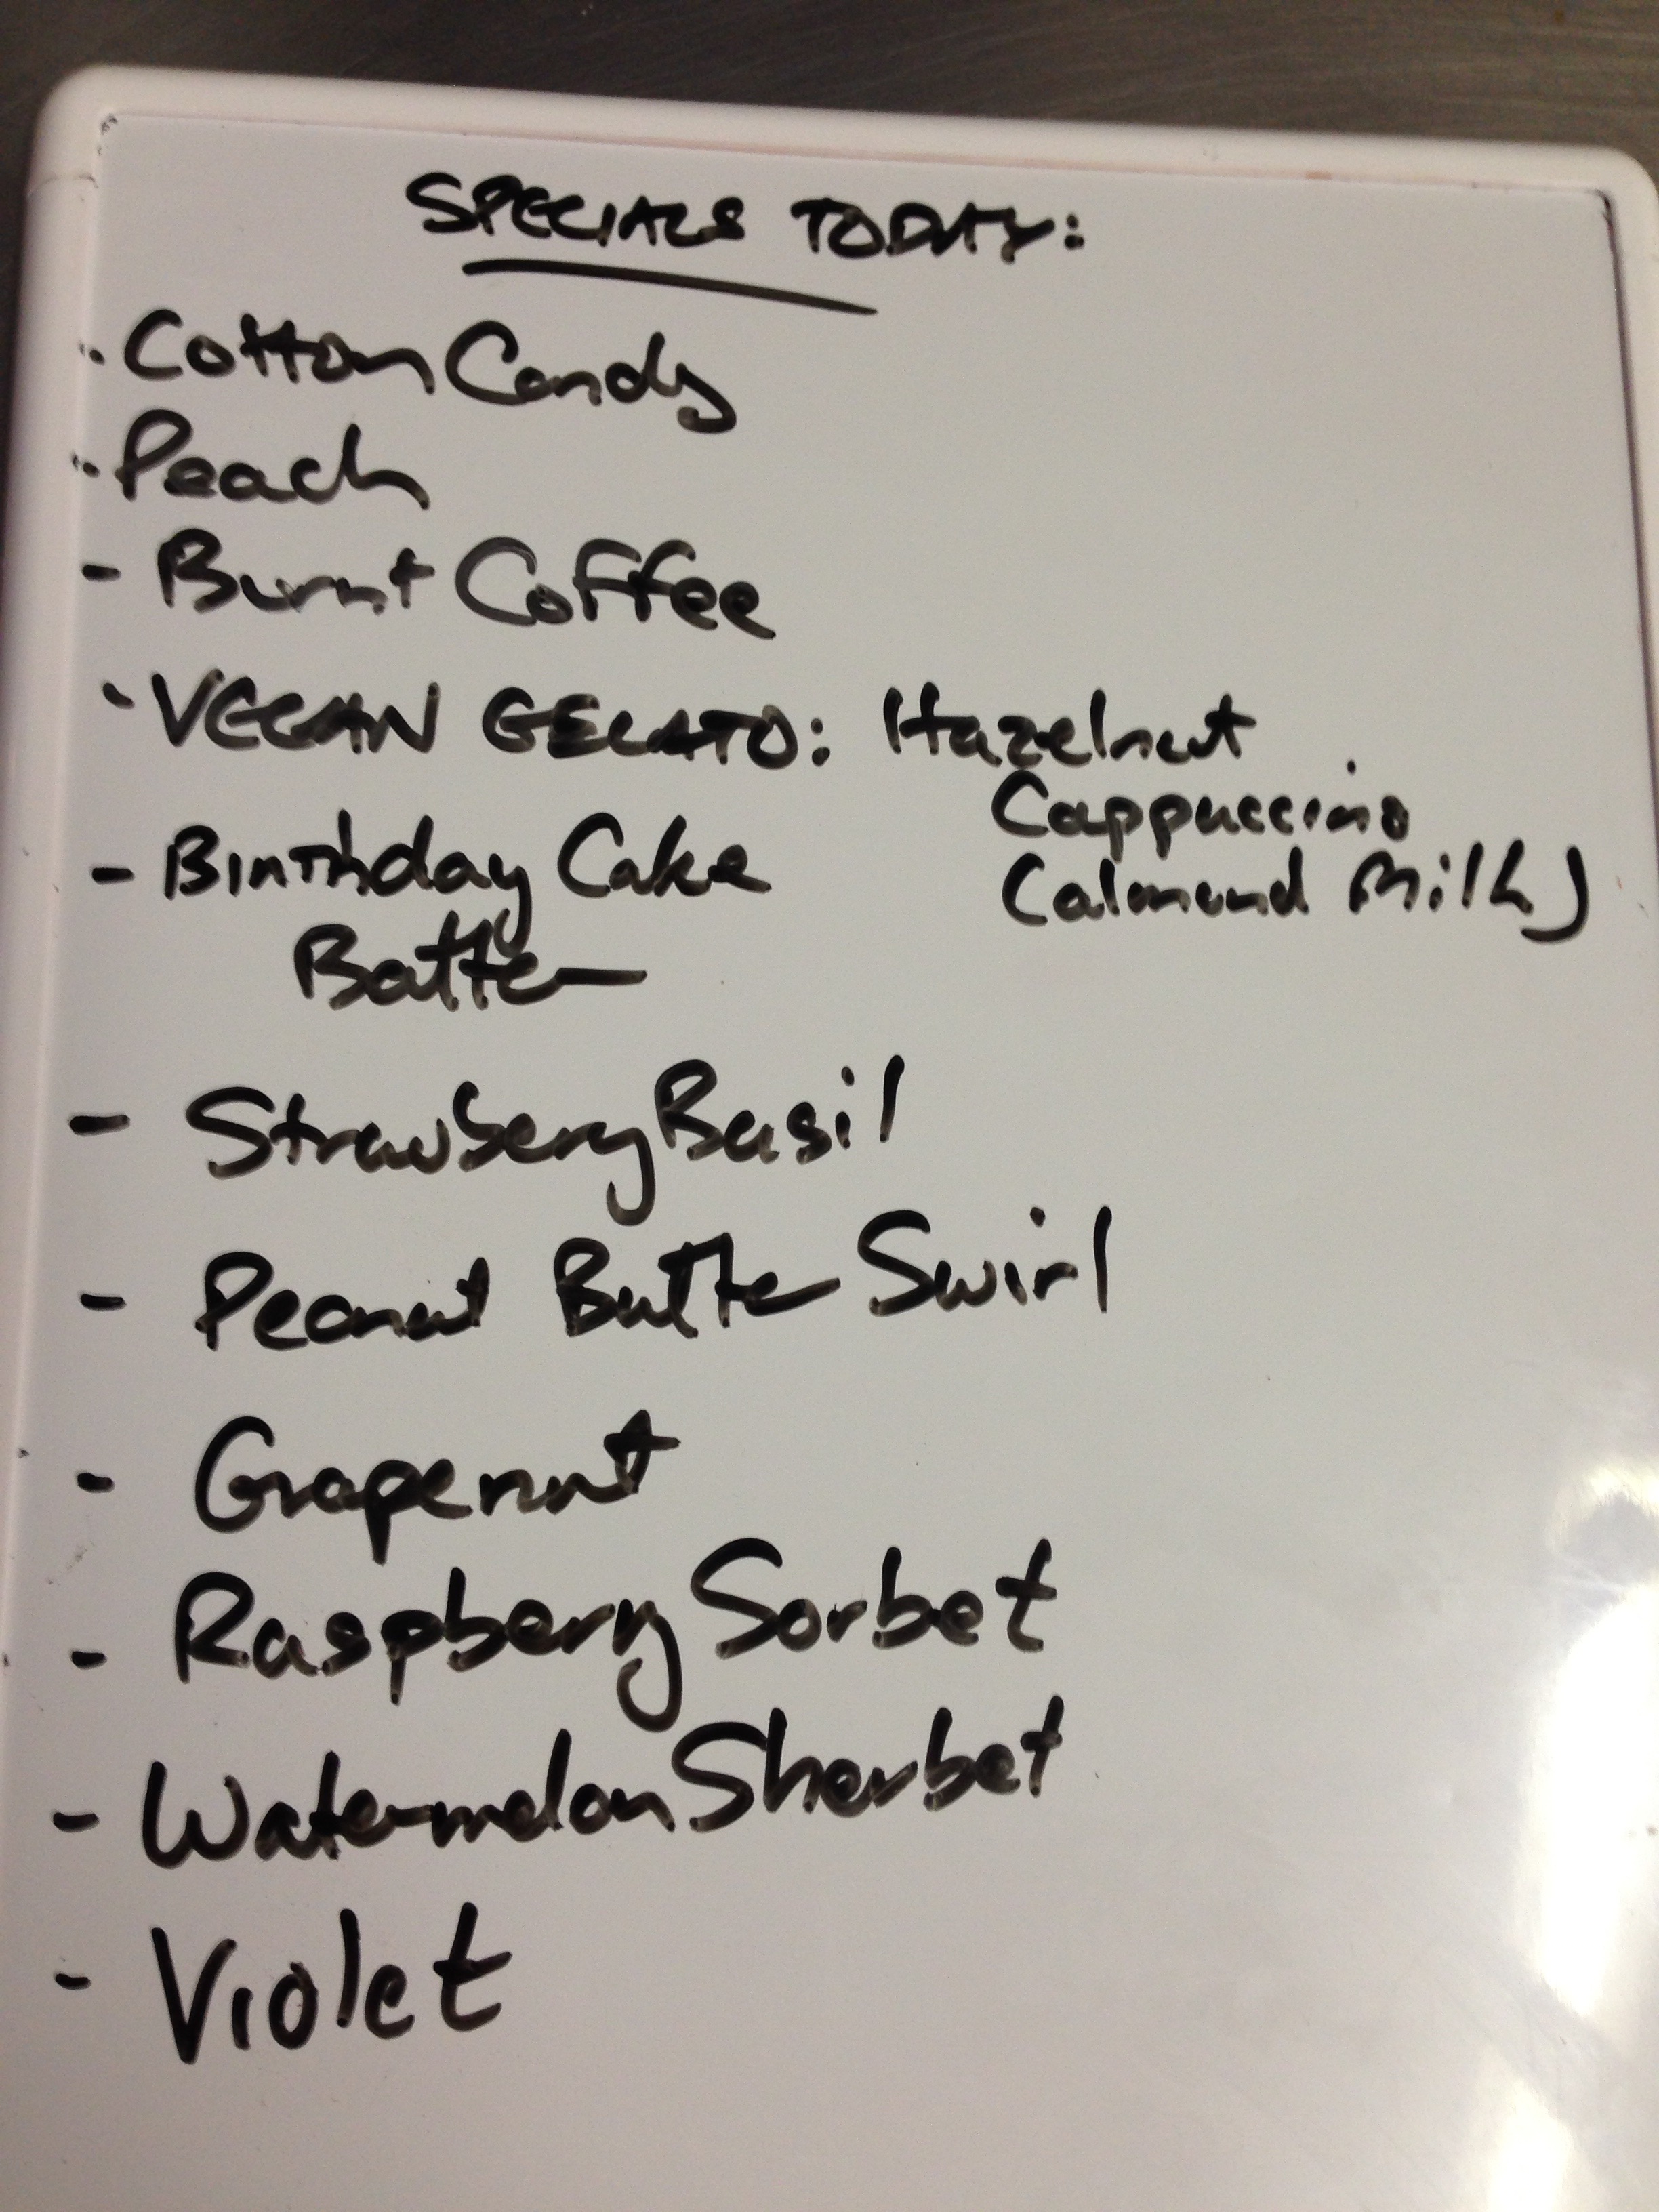 SPECIALS TODAY:
· Cotton Candy
· Peach
- Burnt Coffee
· VEGAN GELATO: Hazelnut
Cappuccino
(almond Milk)
- Birthday Cake
Batter
- Strawbery Basil
- Peanut Butter Swirl
- Grapenut
- Raspberry Sorbet
- Watermelon Sherbet
- Violet